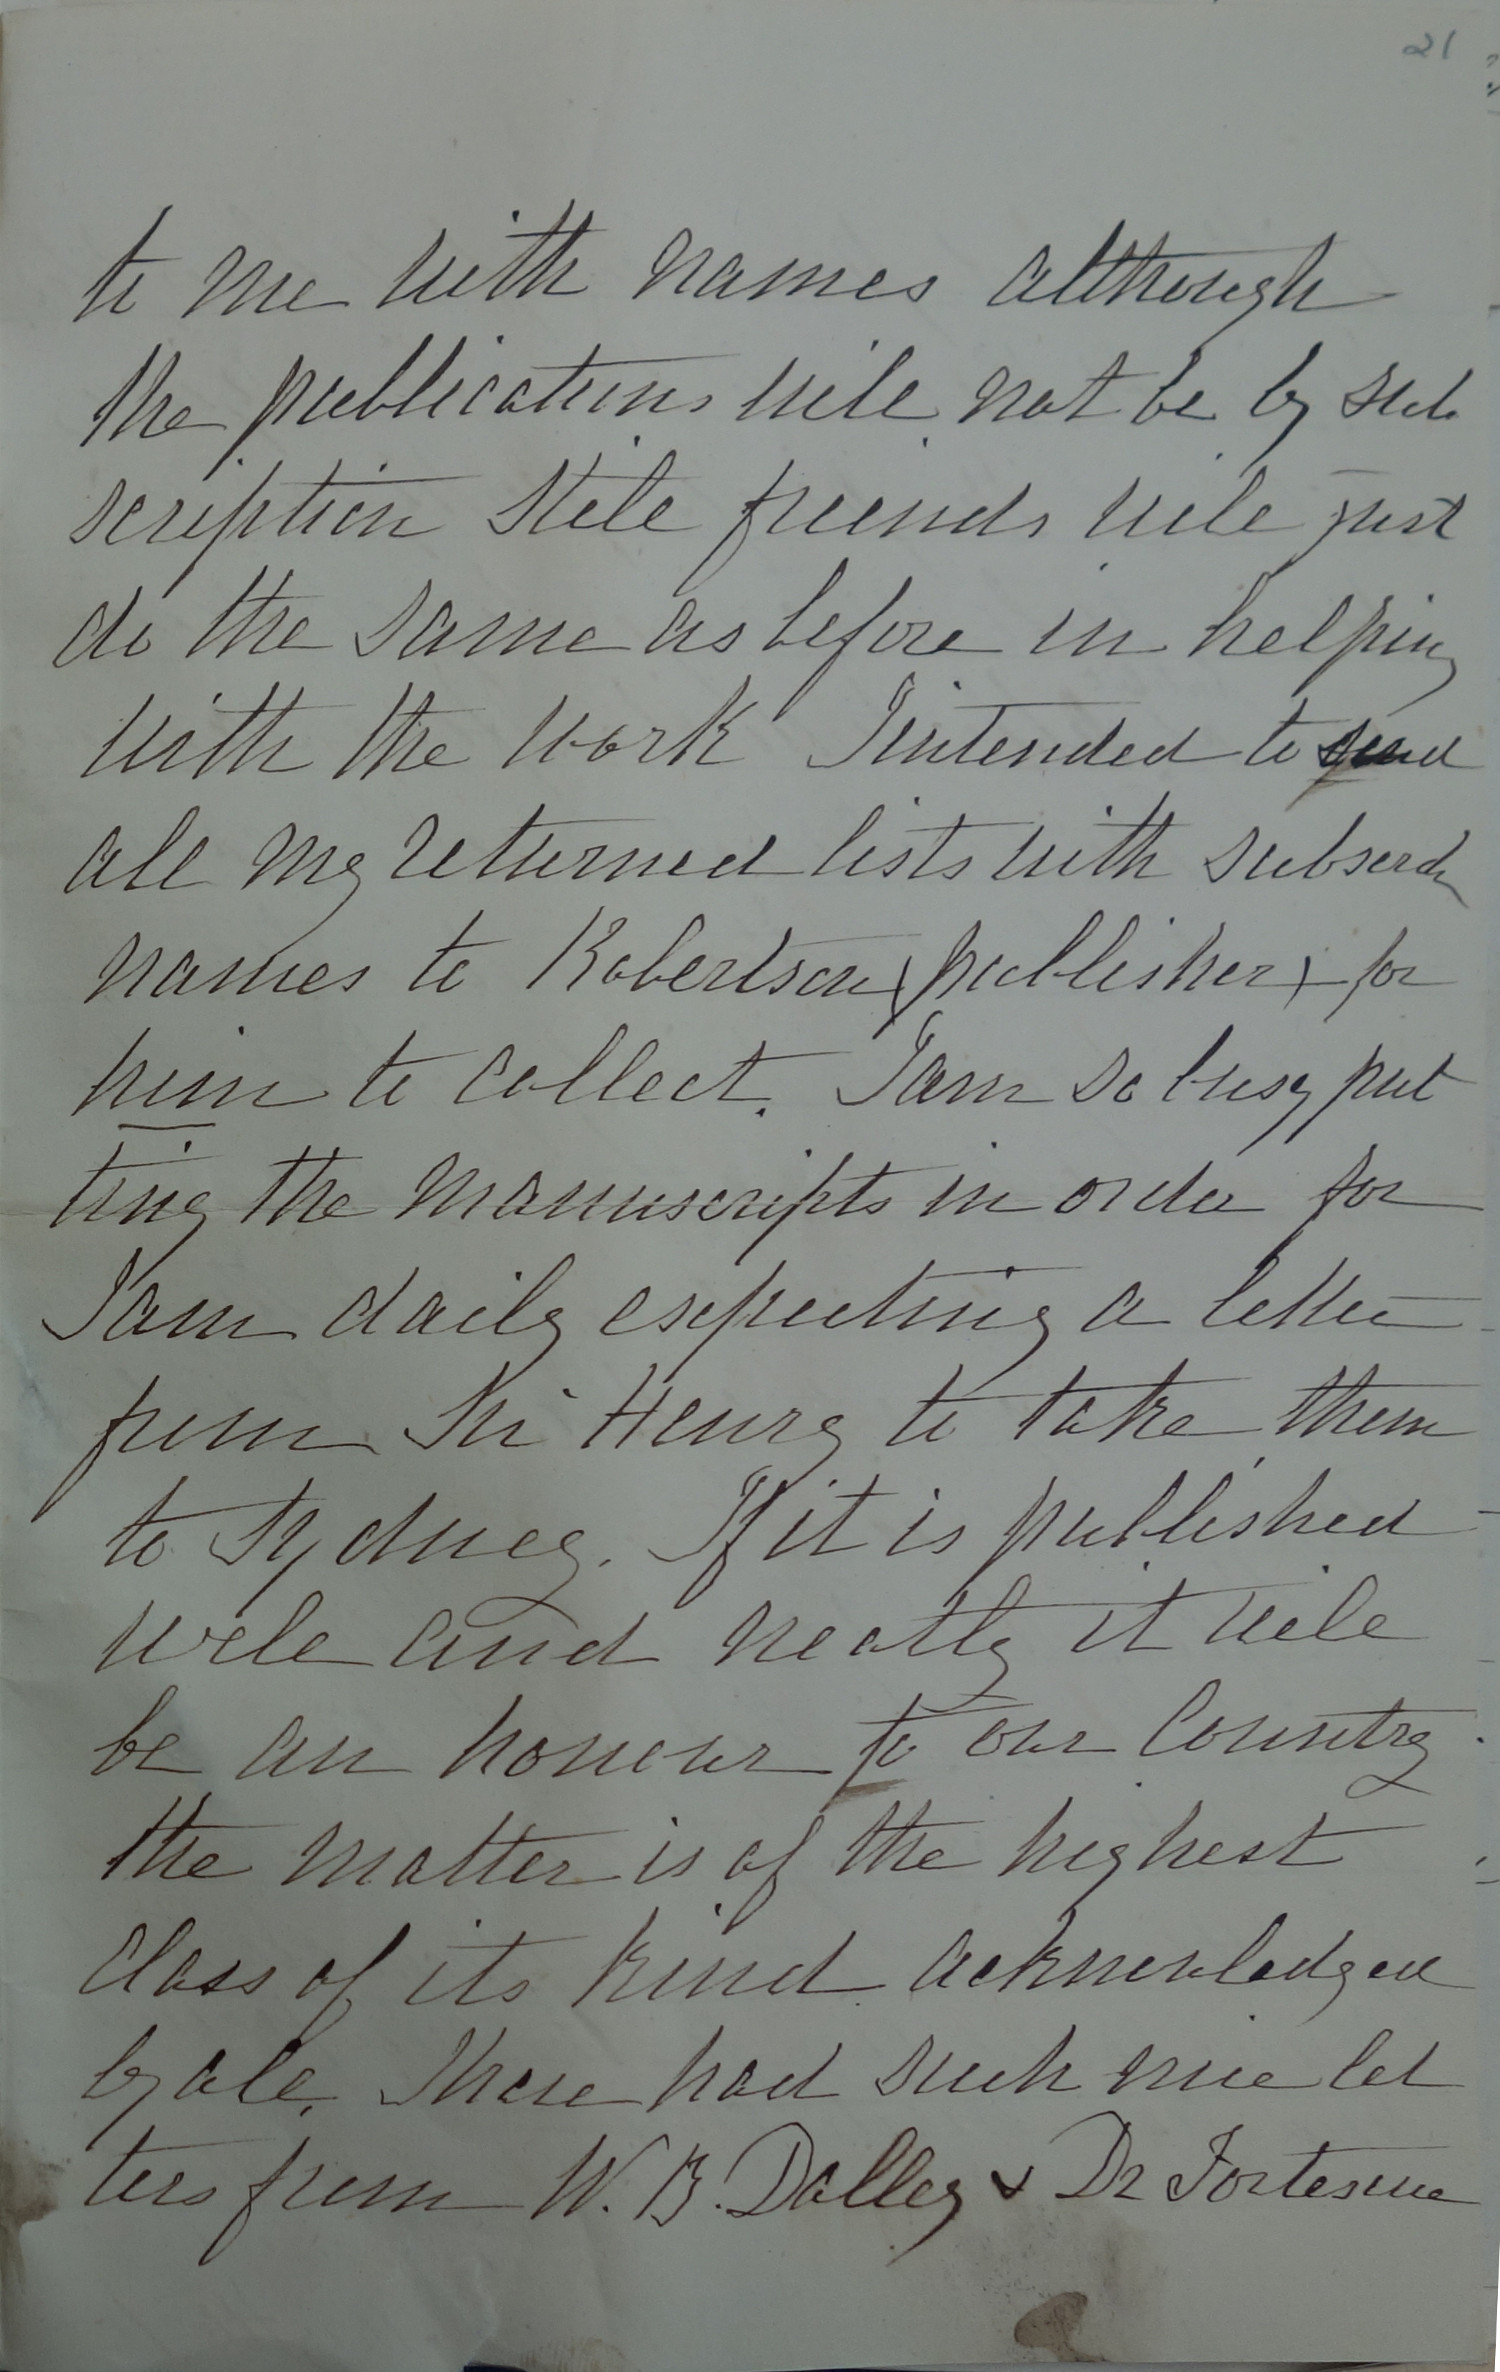 21
to me with names although
the publications will not be by sub
scription still friends will just
do the same as before in helping
with the work I intended to send
all my returned lists with
names to Robertson (publisher) for
him to collect. I am so busy put
ting the manuscripts in order for
I am daily expecting a letter
from Sir Henry to take them
to Sydney. If it is published
well and neatly it will
be an honour to our Country
the matter is of the highest
class of its kind acknowledged
by all. I have had such nice let
ters from W. B. Dalley & Dr Fortescue